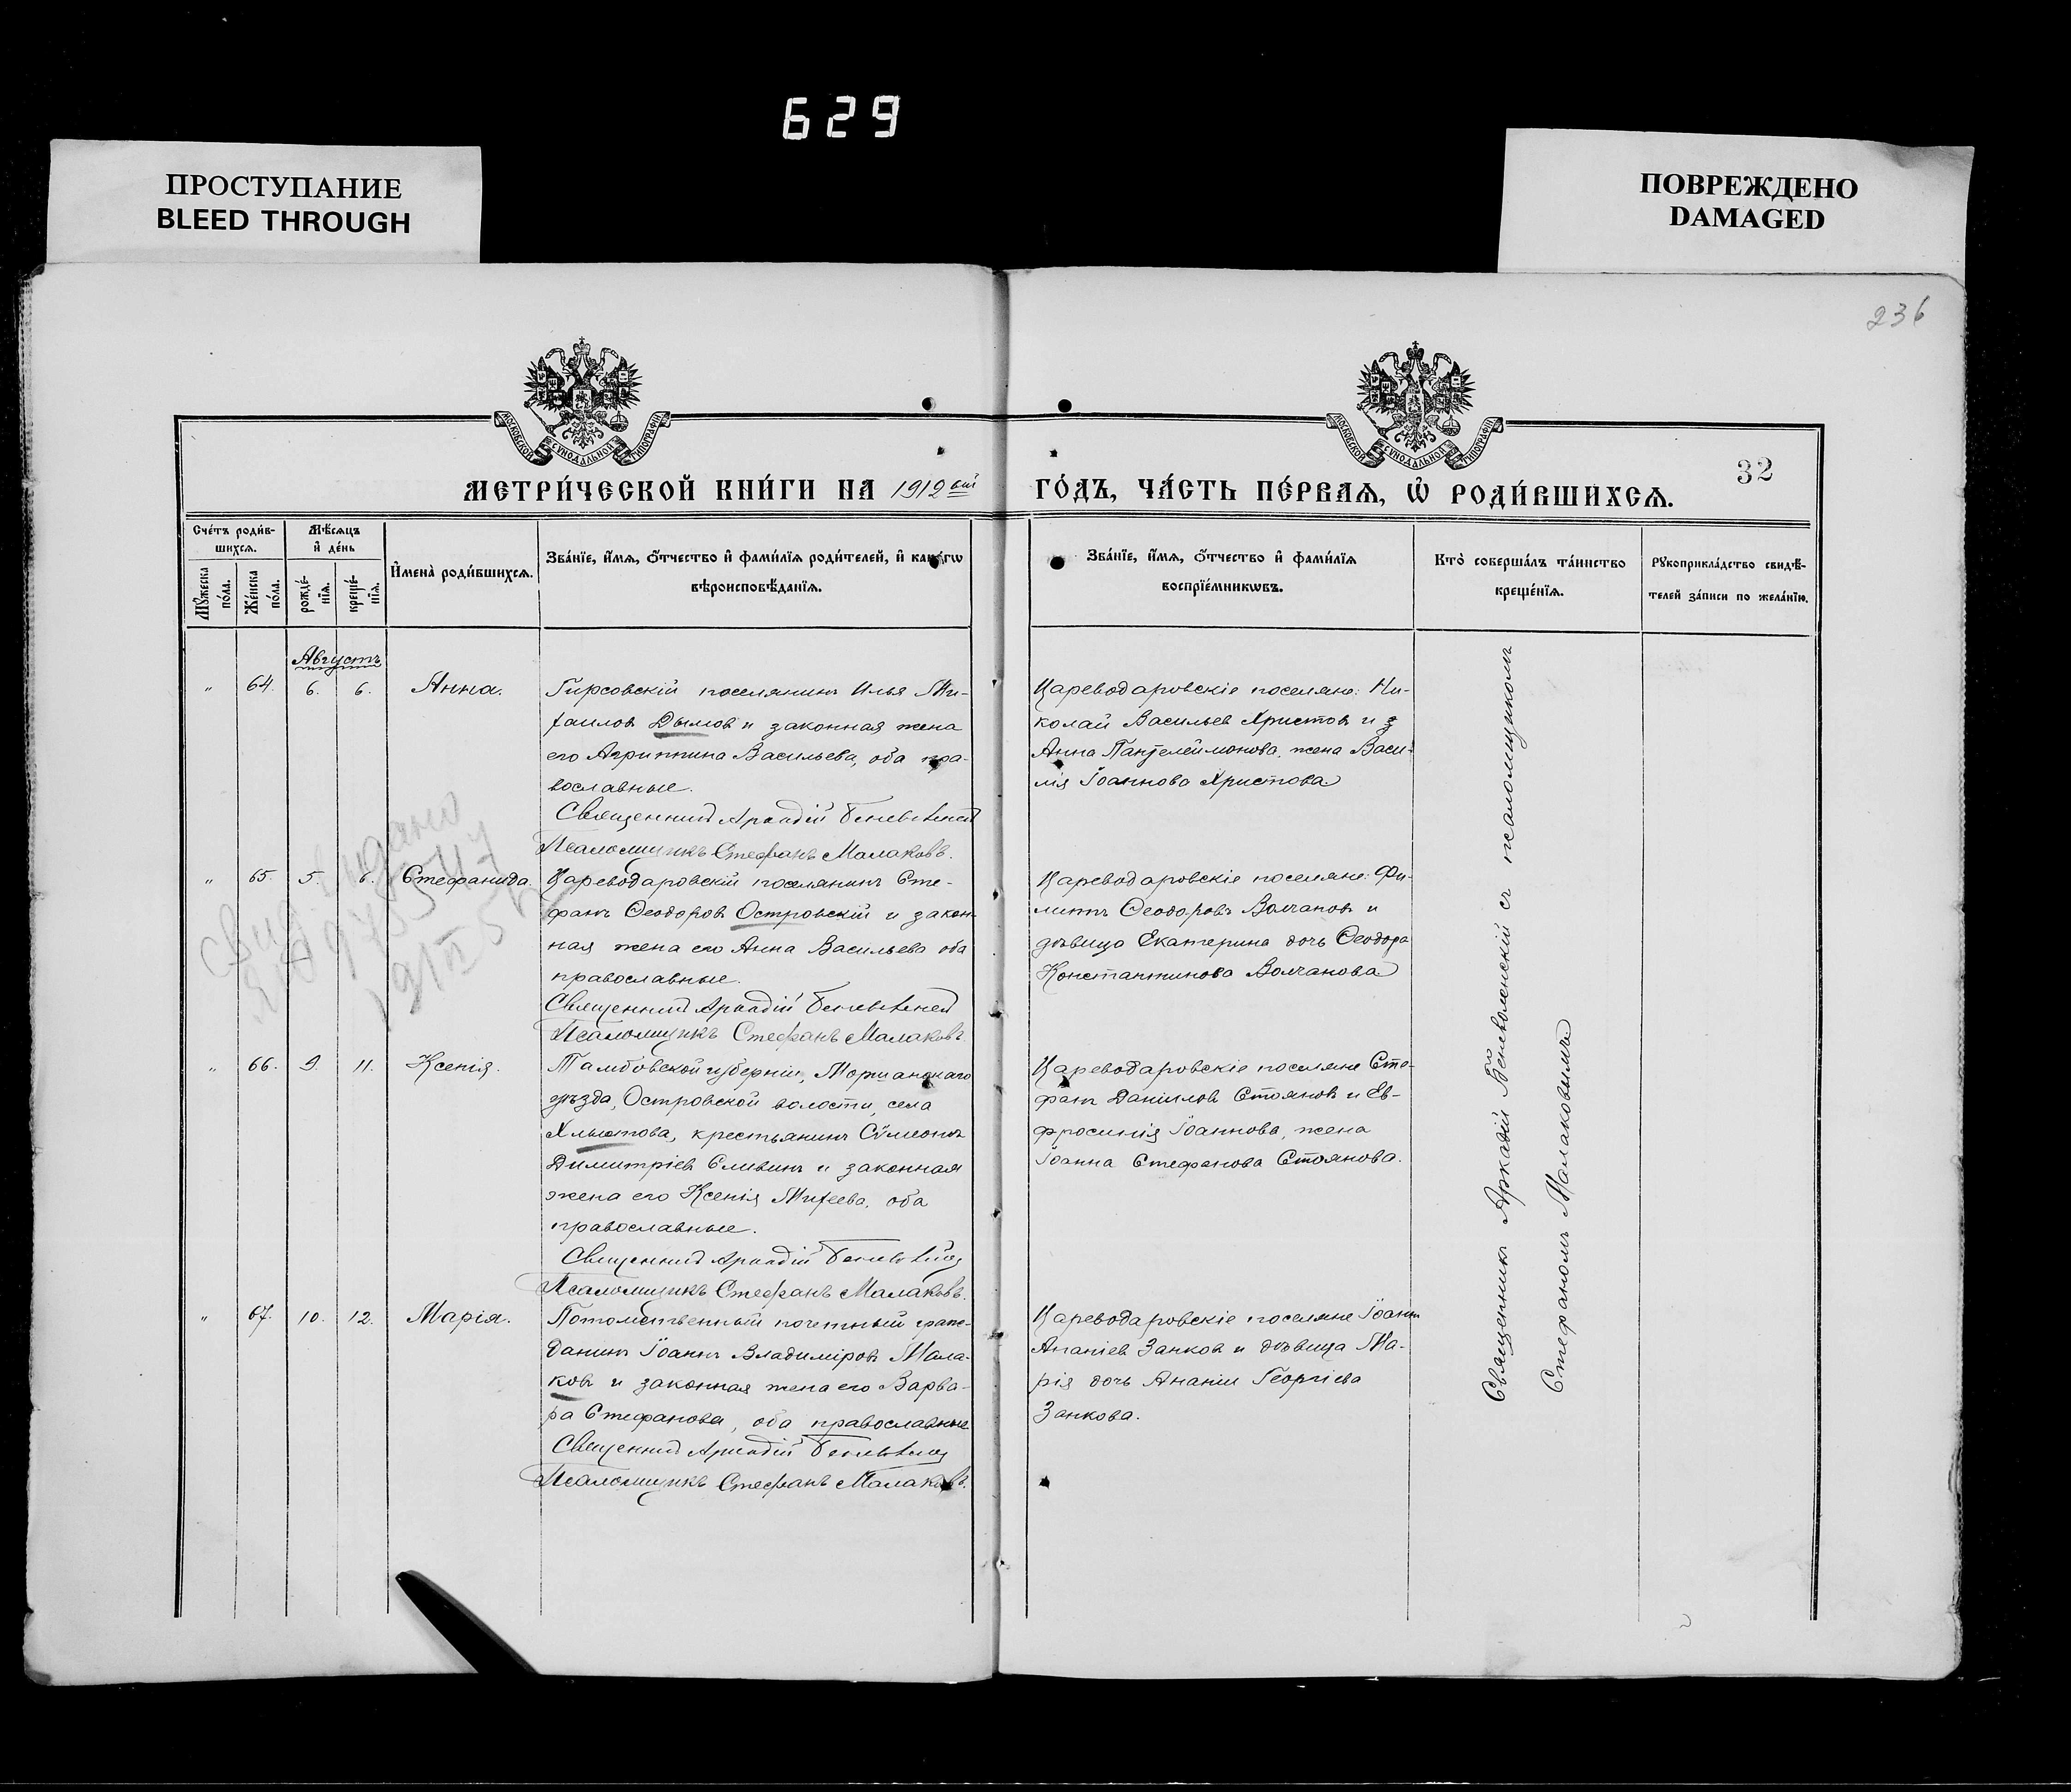 629
ПРОСТУПАНИЕ
BLEED THROUGH
ПОВРЕЖДЕНО
DAMAGED
236
МОСКОВСКОЙ СѴНОДАЛЬНОЙ ТИПОГРАФІИ
МОСКОВСКОЙ СѴНОДАЛЬНОЙ ТИПОГРАФІИ
32
МЕТРИ́ЧЕСКОЙ КНИ́ГИ НА 1912 ый
ГО́ДЪ, ЧА́СТЬ ПЕ́РВАѦ, Ѡ РОДИ́ВШИХСѦ.
Сче́тъ роди́в-
шихсѧ.
Мꙋ́жеска
по́ла.
Же́нска
по́ла.
Мѣ́сѧцъ
и де́нь
рожде́-
нїѧ.
креще́-
нїѧ.
И҆мена̀ роди́вшихсѧ.
Зва́нїе, и҆́мѧ, о҆́тчество и҆ фами́лїѧ роди́телей, и҆ како́гѡ
вѣроисповѣ́данїѧ.
Зва́нїе, и҆́мѧ, о҆́тчество и҆ фами́лїѧ
воспрїе́мникѡвъ.
Кто̀ соверша́лъ та́инство
креще́нїѧ.
Рꙋкоприкла́дство свидѣ́-
телей за́писи по жела́нїю.
Августъ
" 64. 6. 6. Анна.
Гирсовскій поселянинъ Илья Ми-
хаилов Дымов и законная жена
его Агриппина Васильева, оба пра-
вославные.
Священникъ Аркадій Беневоленскій
Псаломщикъ Стефанъ Малаковъ.
Цареводаровскіе поселяне: Ни-
колай Васильев Христов и
Анна Пантелеймонова, жена Васи-
лія Іоаннова Христова
" 65. 5. 6. Стефанида.
Цареводаровскій поселянинъ Сте-
фанъ Ѳеодоров Островскій и закон-
ная жена его Анна Васильева оба
православные.
Священникъ Аркадій Беневоленскій
Псаломщикъ Стефанъ Малаковъ.
Цареводаровскіе поселяне: Фи-
липпъ Ѳеодоровъ Волчановъ и
дѣвица Екатерина дочь Ѳеодора
Константинова Волчанова
" 66. 9. 11. Ксенія.
Тамбовской губерніи, Моршанскаго
уѣзда, Островской волости, села
крестьянинъ Сѵмеонъ
Димитріев Сливинъ и законная
жена его Ксенія Михеева, оба
православные.
Священникъ Аркадій Беневоленскій
Псаломщикъ Стефанъ Малаковъ.
Цареводаровскіе поселяне Сте-
фанъ Даніилов Стоянов и Ев-
фросинія Іоаннова, жена
Іоанна Стефанова Стоянова.
" 67. 10. 12. Марія.
Потомственный почетный граж-
данинъ Іоаннъ Владиміров Мала-
ковъ и законная жена его Варва-
ра Стефанова, оба православные
Священникъ Аркадій Беневоленскій
Псаломщикъ Стефанъ Малаковъ.
Цареводаровскіе поселяне Іоаннъ
Ананіев Занков и дѣвица Ма-
рія дочь Ананіи Георгіева
Занкова.
Священникъ Аркадій Беневоленскій съ псаломщикомъ
Стефаномъ Малаковымъ